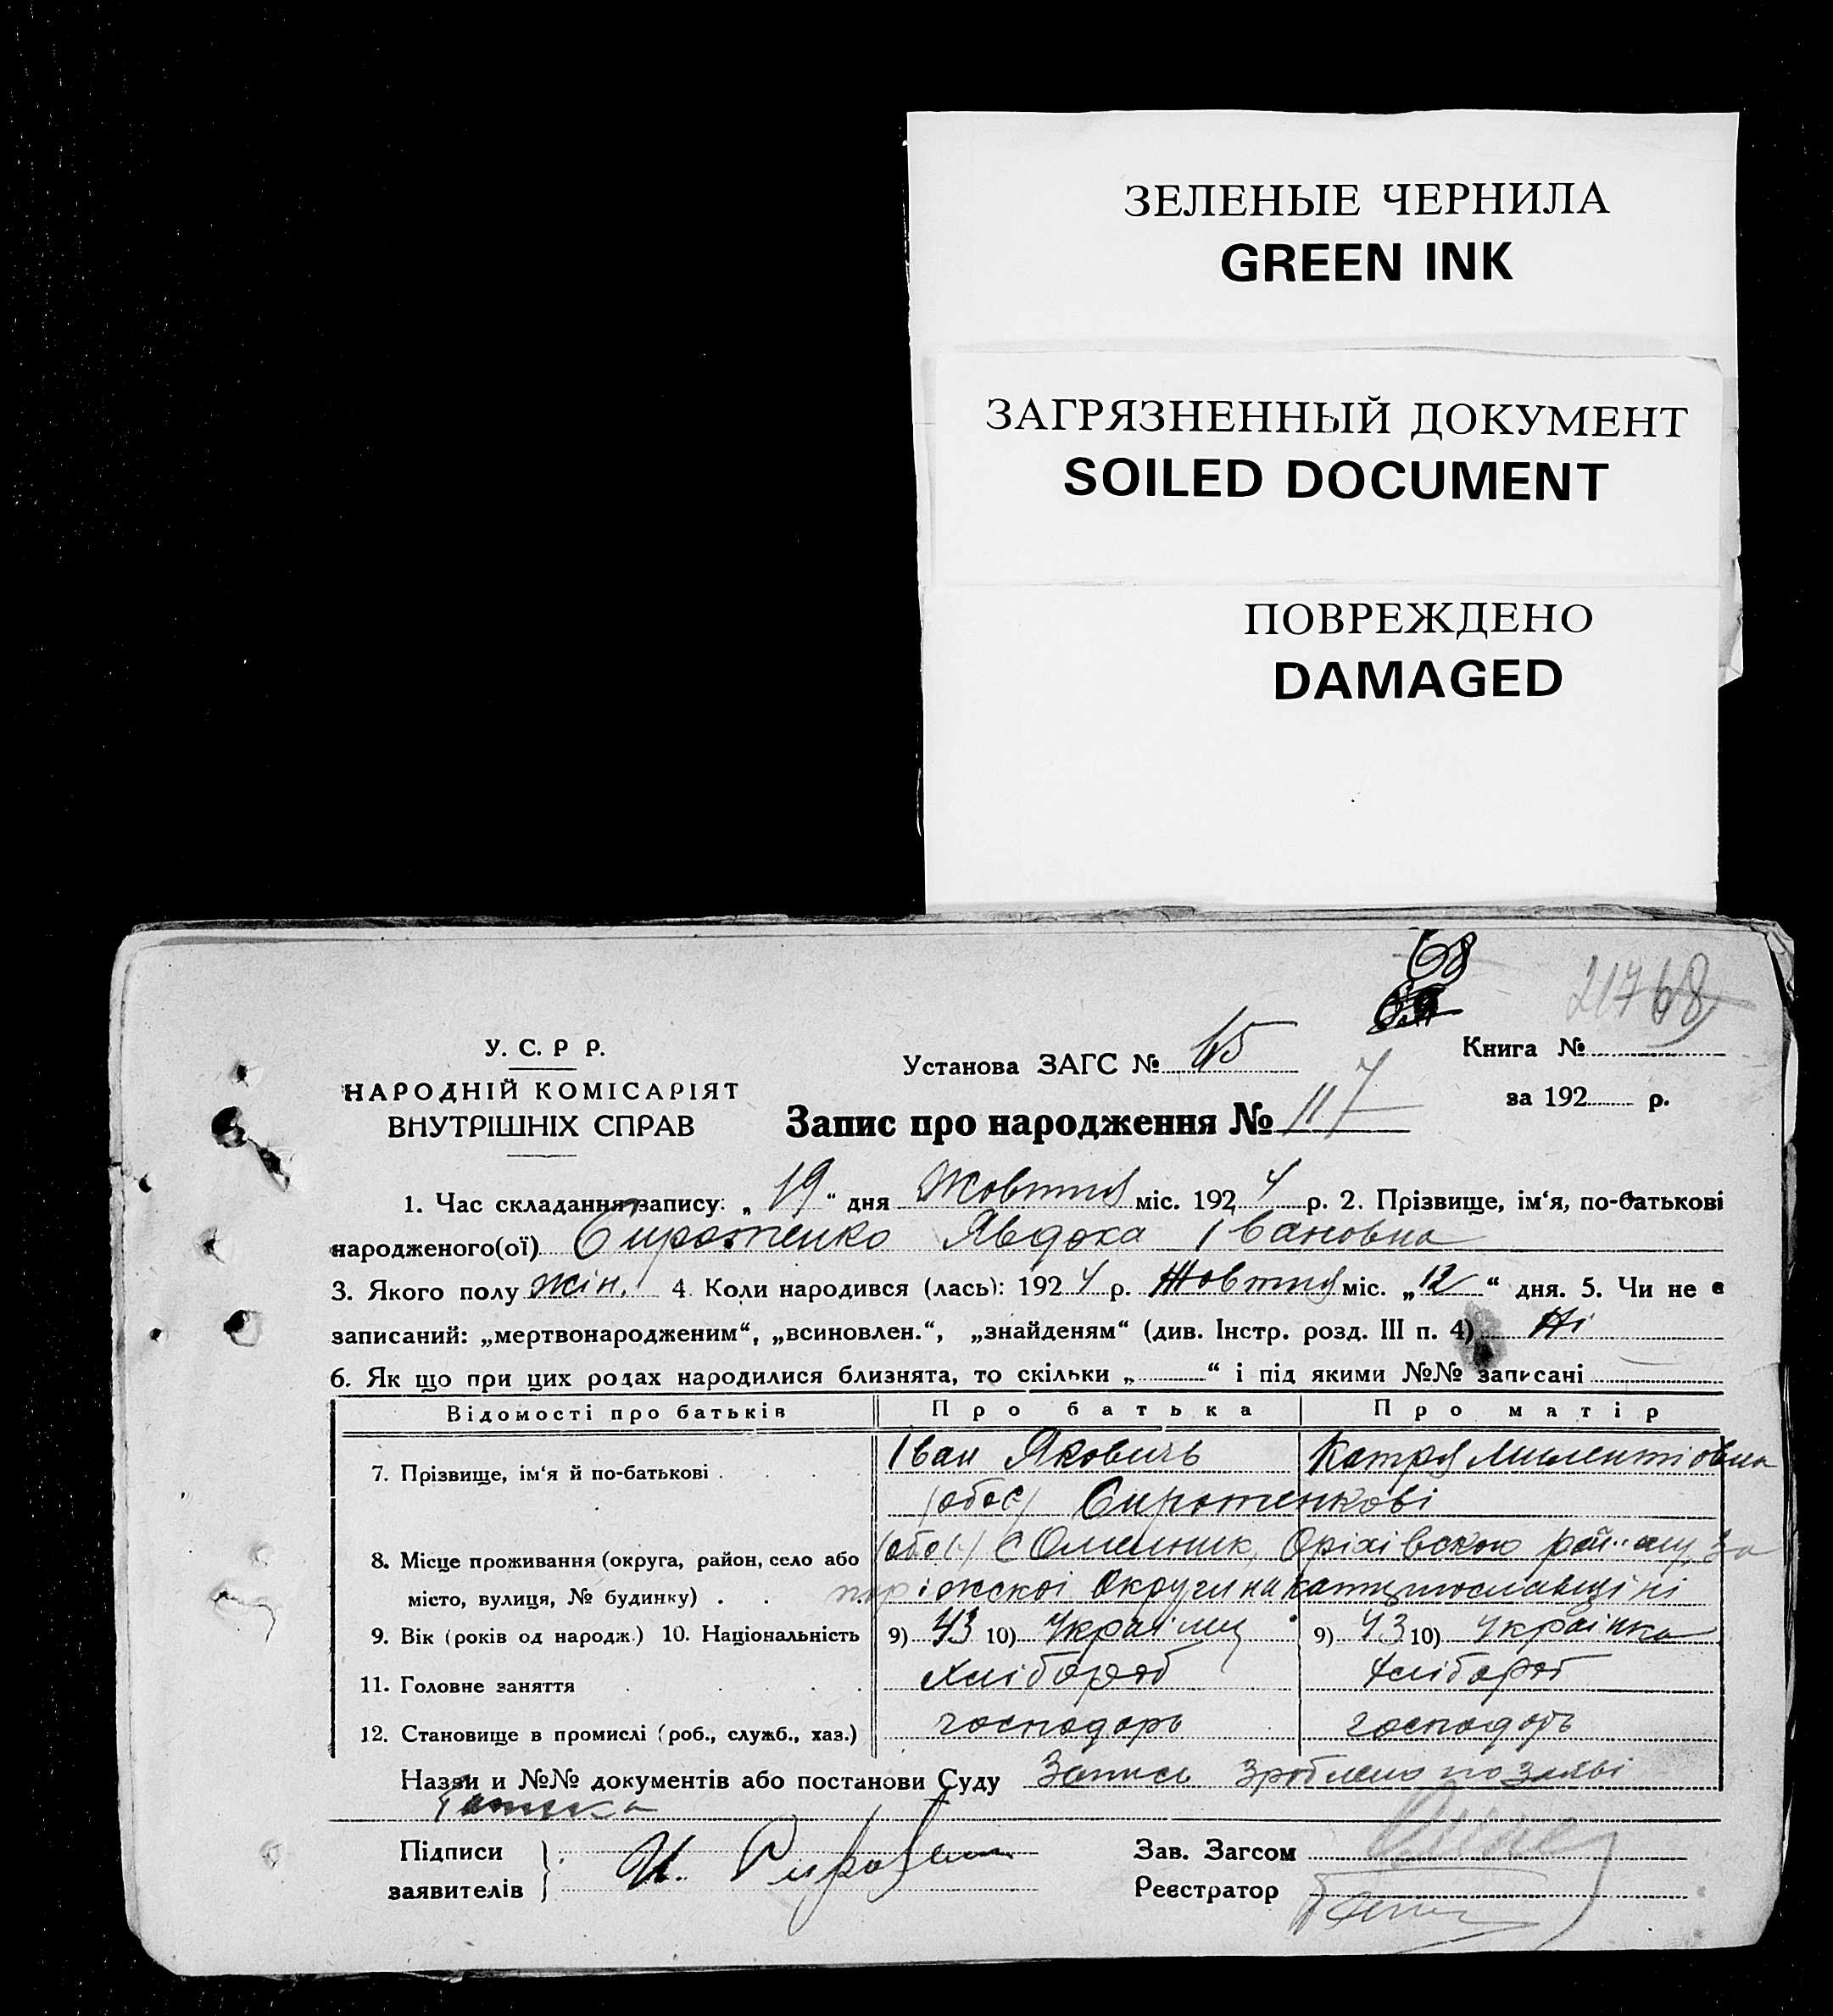 ЗЕЛЕНЫЕ ЧЕРНИЛА
GREEN INK
ЗАГРЯЗНЕННЫЙ ДОКУМЕНТ
SOILED DOCUMENT
ПОВРЕЖДЕНО
DAMAGED
68
21768
У. С. Р Р.
НАРОДНІЙ КОМІСАРІЯТ
ВНУТРІШНІХ СПРАВ
Установа ЗАГС №
Книга №
за 192 р.
Запис про народження № 117
1. Час складання запису: „ 19 “ дня Жовтня міс. 192 4 р. 2. Прізвище, ім‘я, по-батькові
народженого(ої) Сиротенко Явдоха Івановна
3. Якого полу жін. 4. Коли народився (лась): 192 4 р. Жовтня міс. „ 12 “ дня. 5. Чи не є
записаний: „мертвонародженим“, „всиновлен.“, „знайденям“ (див. Інстр. розд. III п. 4) Ні
6. Як що при цих родах народилися близнята, то скільки „ “ і під якими №№ записані
Відомості про батьків Про батька Про матір
7. Прізвище, ім‘я й по-батькові Іван Якович Катря Милентіовна
(обоє) Сиротенкові
8. Місце проживання (округа, район, село або (обоє) с Омельник, Оріхівского району За
місто, вулиця, № будинку) поріжскоі Округи на Катиринославщіні
9. Вік (років од народж.) 10. Національність 9) 43 10) Украінец 9) 43 10) Украінка
11. Головне заняття Хлібороб Хлібороб
12. Становище в промислі (роб., служб., хаз.) господарь господарь
Назви и №№ документів або постанови Суду Запись зроблено по заяві
батька
Підписи
заявителів
И. Сиротен
Зав. Загсом
Реєстратор